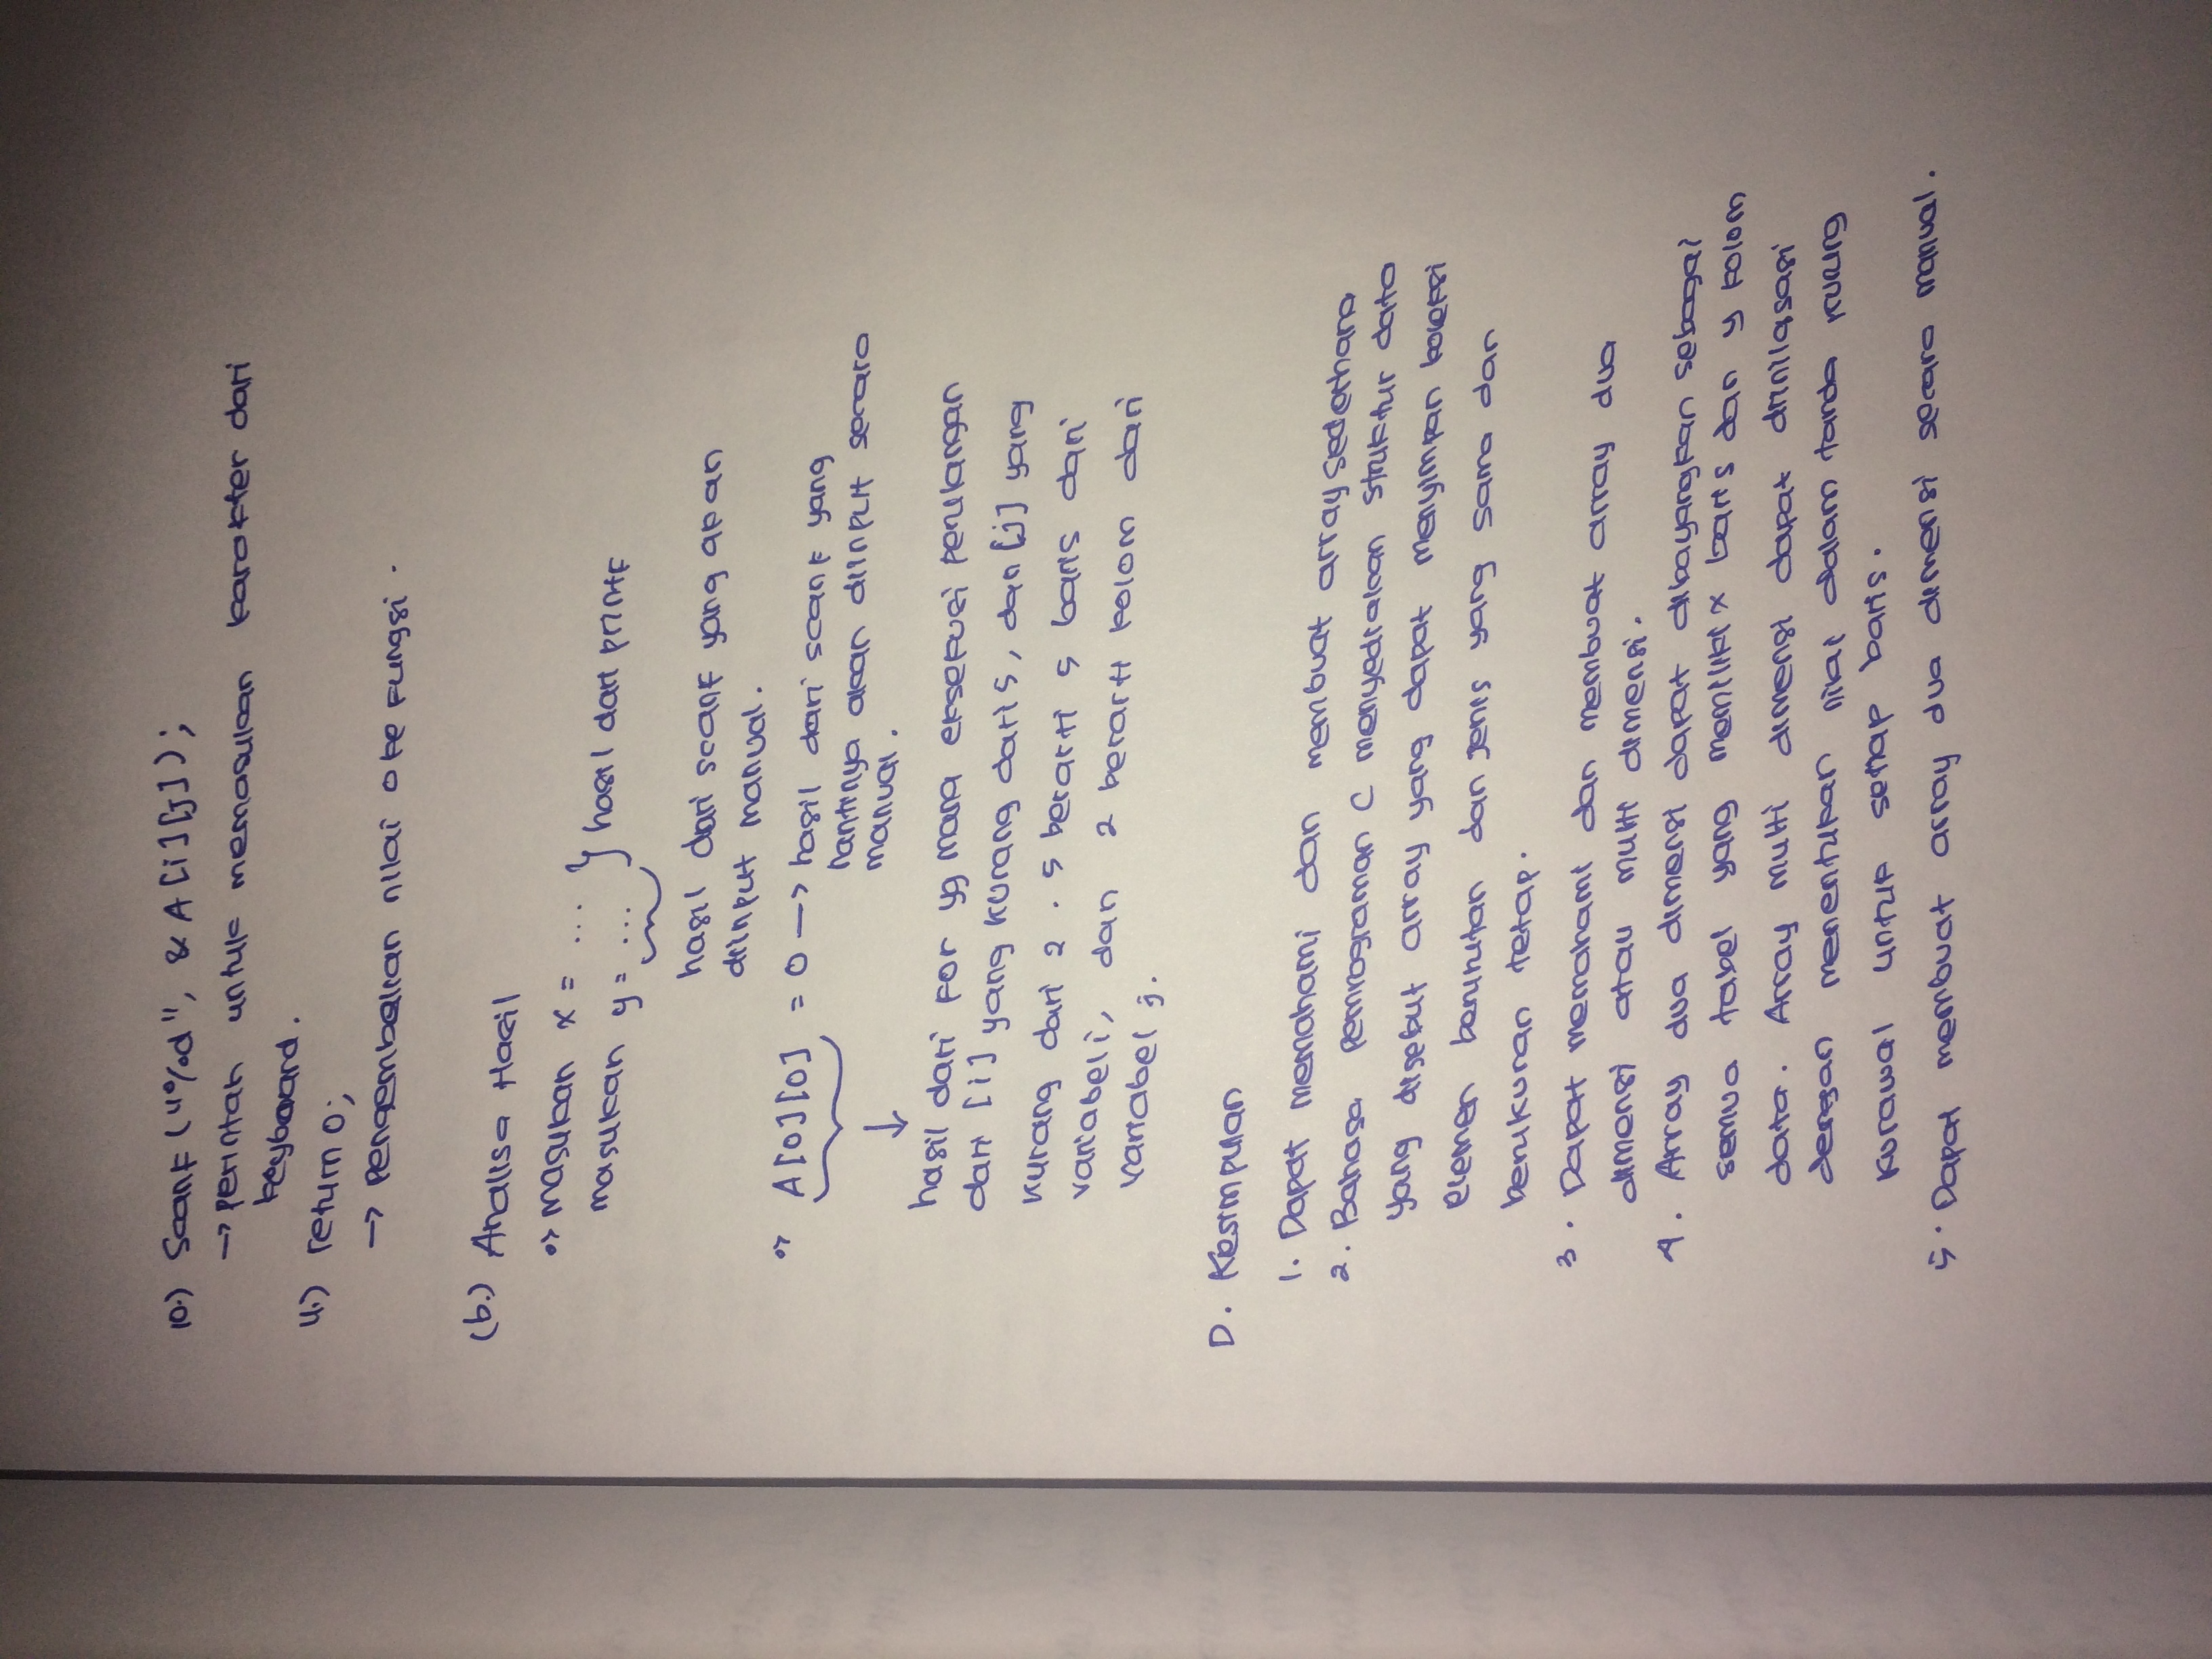 10.) Scanf ("%d", & A[i][j]);
→ perintah untuk memasukan karakter dari
keyboard.
11.) return 0;
→ Pengembalian nilai 0 ke fungsi.
(b.) Analisa Hasil
•> Masukan x = ... } hasil dari printf
masukan y = ...
hasil dari scanf yang akan
diinput manual.
•> A[0][0] = 0 → hasil dari scanf yang
nantinya akan diinput secara
manual.
↓
hasil dari for yg mana eksekusi perulangan
dari [i] yang kurang dari 5, dan [j] yang
kurang dari 2. 5 berarti 5 baris dari
variabel i, dan 2 berarti kolom dari
variabel j.
D. Kesimpulan
1. Dapat memahami dan membuat array sederhana
2. Bahasa pemrograman C menyediakan struktur data
yang disebut array yang dapat menyimpan koleksi
elemen berurutan dan jenis yang sama dan
berukuran tetap.
3. Dapat memahami dan membuat array dua
dimensi atau multi dimensi.
4. Array dua dimensi dapat dibayangkan sebagai
semua tabel yang memiliki x baris dan y kolom
data. Array multi dimensi dapat diinilasasi
dengan menentukan nilai dalam tanda kurung
kurawal untuk setiap baris.
5. Dapat membuat array dua dimensi secara manual.